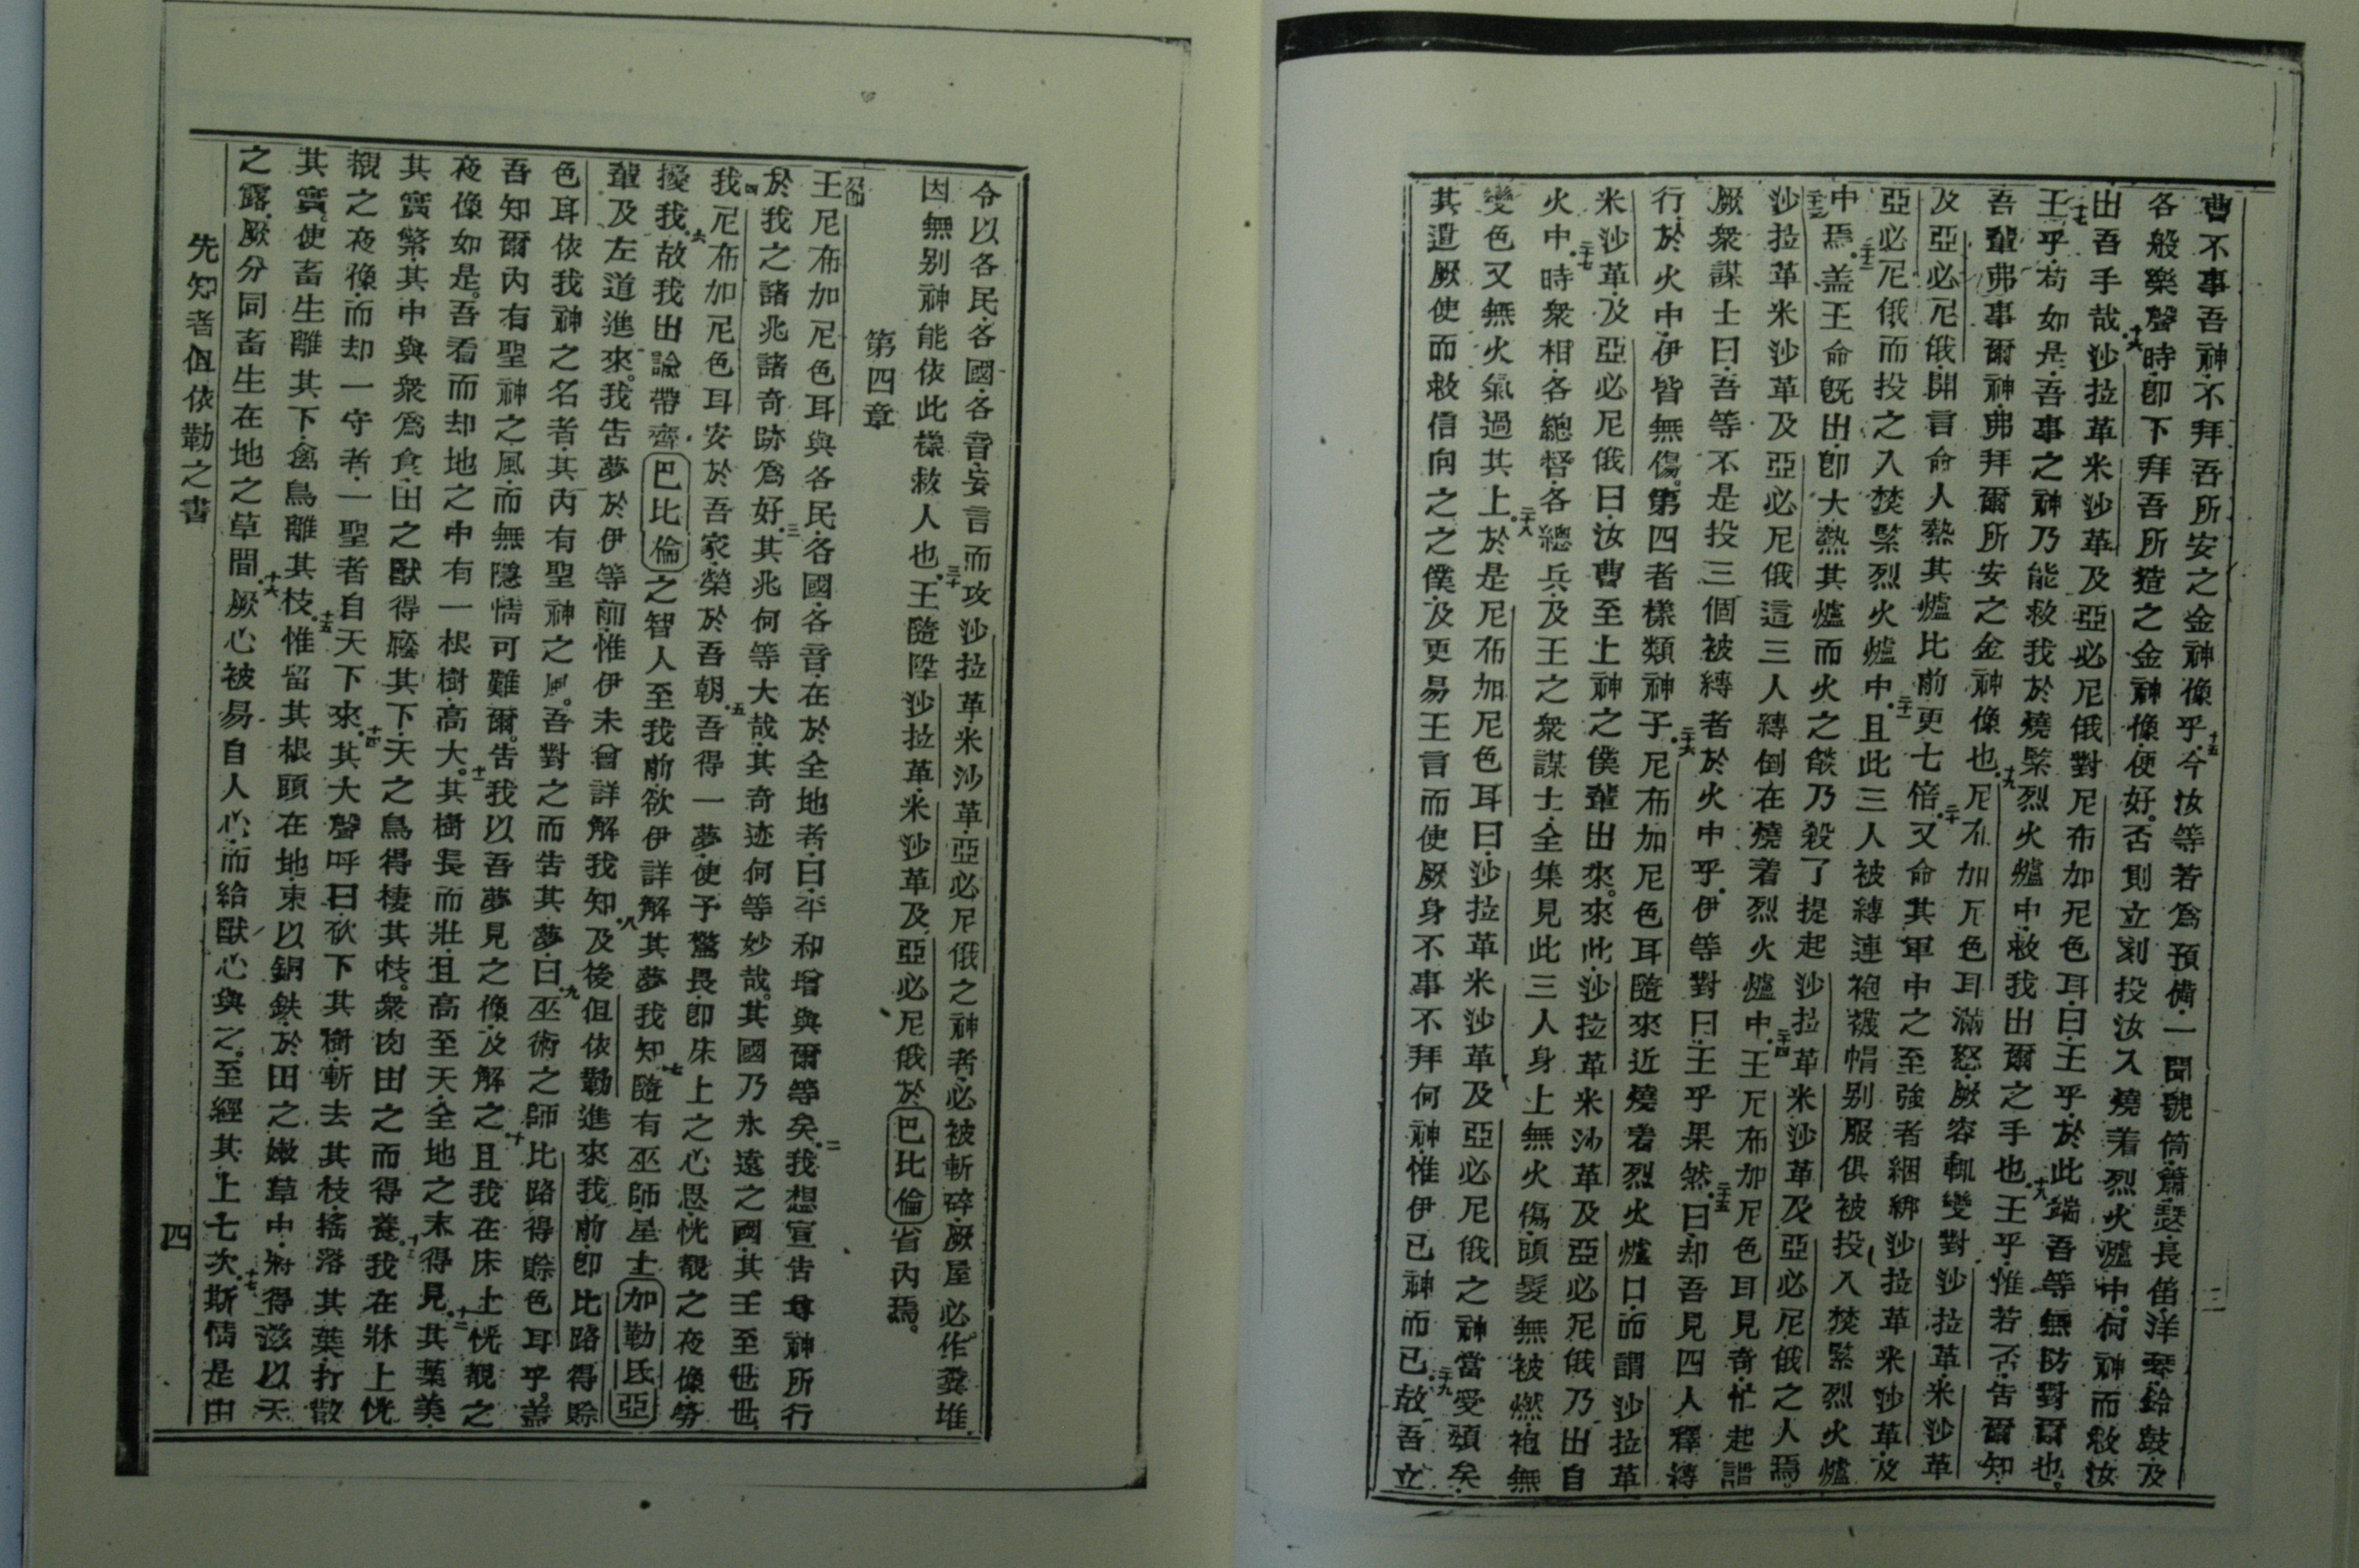 曹不事吾神不拜吾所安之金神像乎十五今汝等若爲預備一聞號筒簫瑟長笛洋琴鈴鼓及
各般樂聲時卽下拜吾所造之金神像便好否則立刻投汝入燒着烈火爐中何神而救汝
出吾手哉十六沙拉革米沙革及亞必尼俄對尼布加尼色耳曰王乎於此端吾等無防對爾也
十七王乎苟如是吾事之神乃能救我於燒緊烈火爐中救我出爾之手也十八王乎惟若否告爾知
吾輩弗事爾神弗拜爾所安之金神像也十九尼布加尼色耳滿怒厥容輒變對沙拉革米沙革
及亞必尼俄開言命人熱其爐比前更七倍二十又命其軍中之至強者綑綁沙拉革米沙革及
亞必尼俄而投之入焚緊烈火爐中二十一且此三人被縛連袍襪帽别服俱被投入焚緊烈火爐
中焉二十二盖王命旣出卽大熱其爐而火之燄乃殺了提起沙拉革米沙革及亞必尼俄之人焉
二十三沙拉革米沙革及亞必尼俄這三人縛倒在燒着烈火爐中二十四王尼布加尼色耳見奇忙起謂
厥衆謀士曰吾等不是投三個被縛者於火中乎伊等對曰王乎果然二十五曰却吾見四人釋縛
行於火中伊皆無傷第四者樣類神子二十六尼布加尼色耳隨來近燒着烈火爐口而謂沙拉革
米沙革及亞必尼俄曰汝曹至上神之僕輩出來來此沙拉革米沙革及亞必尼俄乃出自
火中二十七時衆相各總督各總兵及王之衆謀士全集見此三人身上無火傷頭髮無被燃袍無
變色又無火氣過其上二十八於是尼布加尼色耳曰沙拉革米沙革及亞必尼俄之神當愛頌矣
其遣厥使而救信向之之僕及更易王言而使厥身不事不拜何神惟伊已神而已二十九故吾立
令以各民各國各音妄言而攻沙拉革米沙革亞必尼俄之神者必被斬碎厥屋必作糞堆
因無别神能依此樣救人也三十王隨陞沙拉革米沙革及亞必尼俄於巴比倫省內焉
第四章
王尼布加尼色耳與各民各國各音在於全地者曰平和增與爾等矣二我想宣告尊神所行
於我之諸兆諸奇跡爲好三其兆何等大哉其奇迹何等妙哉其國乃永遠之國其王至世世
四我尼布加尼色耳安於吾家榮於吾朝五吾得一夢使予驚畏卽床上之心思恍覩之夜像勞
擾我六故我出諭帶齊巴比倫之智人至我前欲伊詳解其夢我知七隨有巫師星士加勒氏亞
輩及左道進來我告夢於伊等前惟伊未曾詳解我知八及後但依勒進來我前卽比路得賒
色耳依我神之名者其內有聖神之風吾對之而告其夢曰九巫術之師比路得賒色耳乎盖
吾知爾內有聖神之風而無隱情可難爾告我以吾夢見之像及解之十且我在床上恍覩之
夜像如是吾看而却地之中有一根樹高大十一其樹長而壯且高至天全地之末得見十二其葉美
其實繁其中與衆爲食田之獸得廕其下天之鳥得棲其枝衆肉由之而得養十三我在牀上恍
覩之夜像而却一守者一聖者自天下來十四其大聲呼曰砍下其樹斬去其枝搖落其葉打散
其實使畜生離其下禽鳥離其枝十五惟留其根頭在地束以銅鉄於田之嫩草中將得滋以天
之露厥分同畜生在地之草間十六厥心被易自人心而給獸心與之至經其上七次十七斯情是由
先知者但依勒之書
四